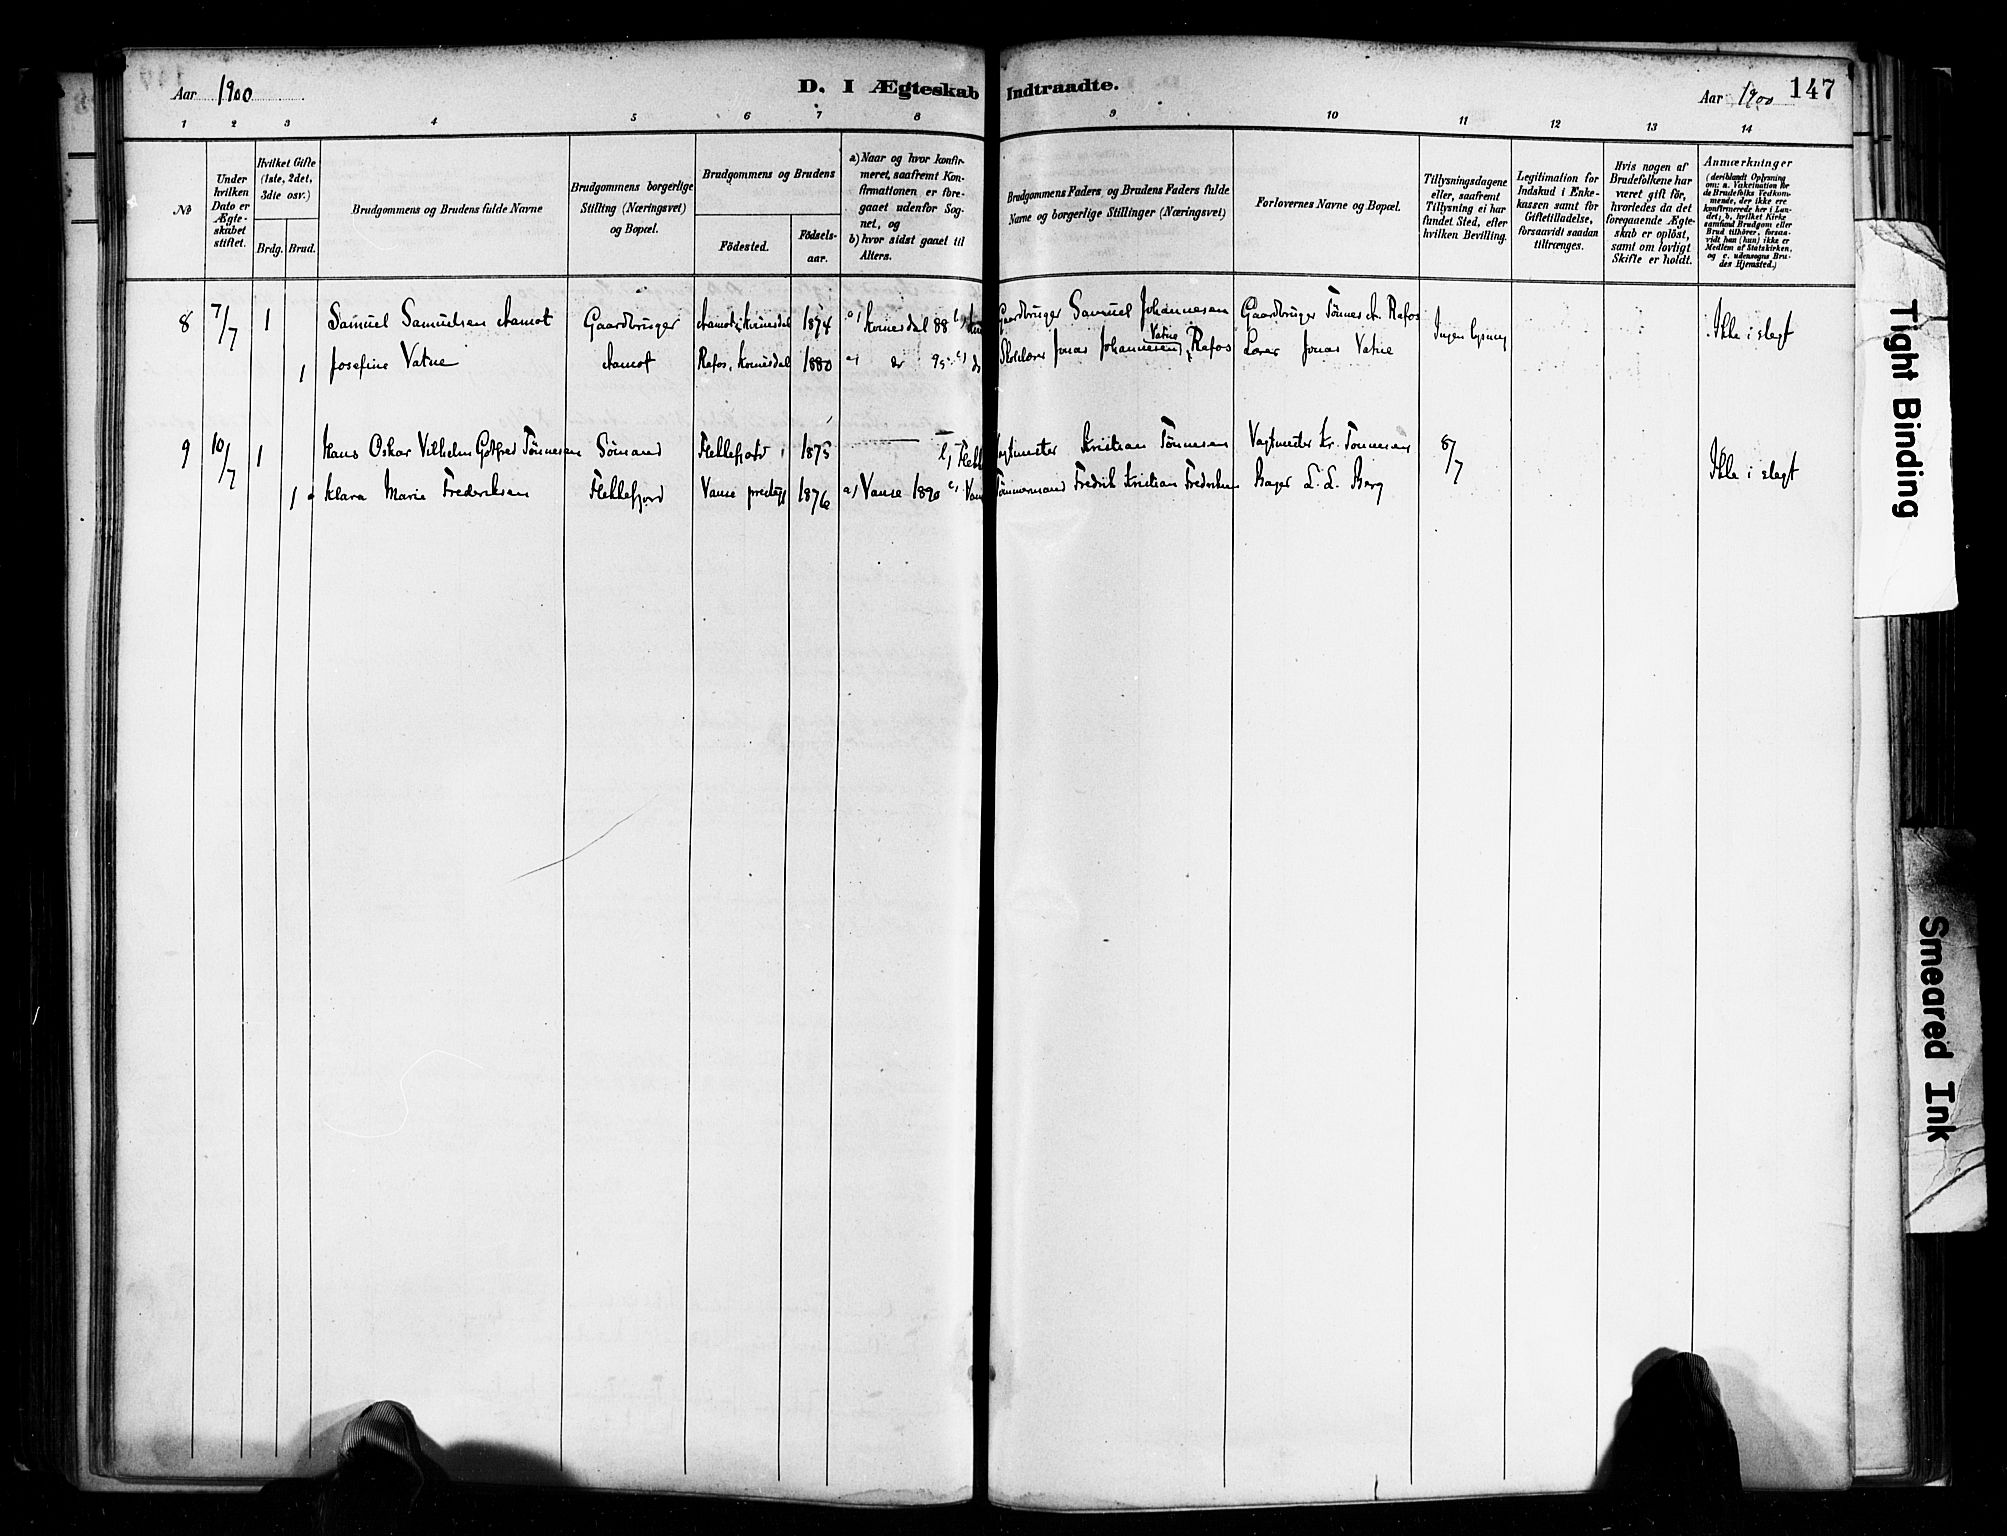 Aar 1900
D. I Ægteskab Indtraadte.
Aar 1900
147
1 2 3 4 5 6 7 8 9 10 11 12 13 14
№
Under hvilken Dato er Ægteskabet stiftet.
Hvilket Gifte (1ste, 2det, 3die osv.)
Brdg. Brud.
Brudgommens og Brudens fulde Navne
Brudgommens borgerlige Stilling (Næringsvei) og Bopæl.
Brudgommens og Brudens
Födested.
Födsels-aar.
a) Naar og hvor konfir-
meret, saafremt Kon-
firmationen er fore-
gaaet udenfor Sog-
net, og
b) hvor sidst gaaet til
Alters.
Brudgommens Faders og Brudens Faders fulde
Navne og borgerlige Stillinger (Næringsvei)
Forlovernes Navne og Bopæl.
Tillysningsdagene
eller, saafremt
Tillysning ei har
fundet Sted, efter
hvilken Bevilling.
Legitimation for
Indskud i Ænke-
kassen samt for
Giftetilladelse,
forsaavidt saadan
tiltrænges.
Hvis nogen af
Brudefolkene har
været gift för,
hvorledes da det
foregaaende Ægte-
skab er oplöst,
samt om lovligt
Skifte er holdt.
Anmærkninger
(deriblandt Oplysning
om: a. Vakcination for
de Brudefolks Vedkom-
mende, der ikke ere
konfirmerede her i Lan-
det; b. hvilket Kirke
samfund Brudgom eller
Brud tilhörer, forsaa-
vidt han (hun) ikke er
Medlem af Statskirken,
og c. udensogns Bru-
des Hjemsted.)
8 7/7 1 Samuel Samuelsen Aamot Gaardbruger Aamot, Kvinesdal 1874 a) Kvinesdal 88 b) Gaardbruger Samuel Johannesen Gaardbruger Tönnes A. Rafos Ingen lysning Ikke i slegt
1 Josefine Vatne Aamot Rafos, Kvinesdal 1880 a) do 95 Jonas Johannesen Vatne, Rafos Lærer Jonas Vatne
9 10/7 1 Hans Oskar Vilhelm Gotfred Tönnesen Sömand Flekkefjord 1875 b) Kristian Tönnesen Vagtmester Kr. Tönnesen 8/7 Ikke i slegt
1 Klara Marie Frederiksen Flekkefjord Vanse prestgj 1876 a) Vanse 1890 Tömmermand Fredrik Kristian Frederiksen Bager L. L. Berg
Tight Binding
Smeared Ink